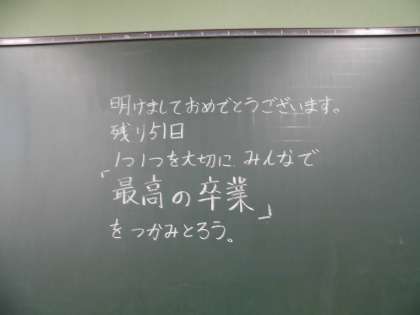 明けましておめでとうございます。
残り51日
1つ1つを大切に みんなで
「最高の卒業」
をつかみとろう。